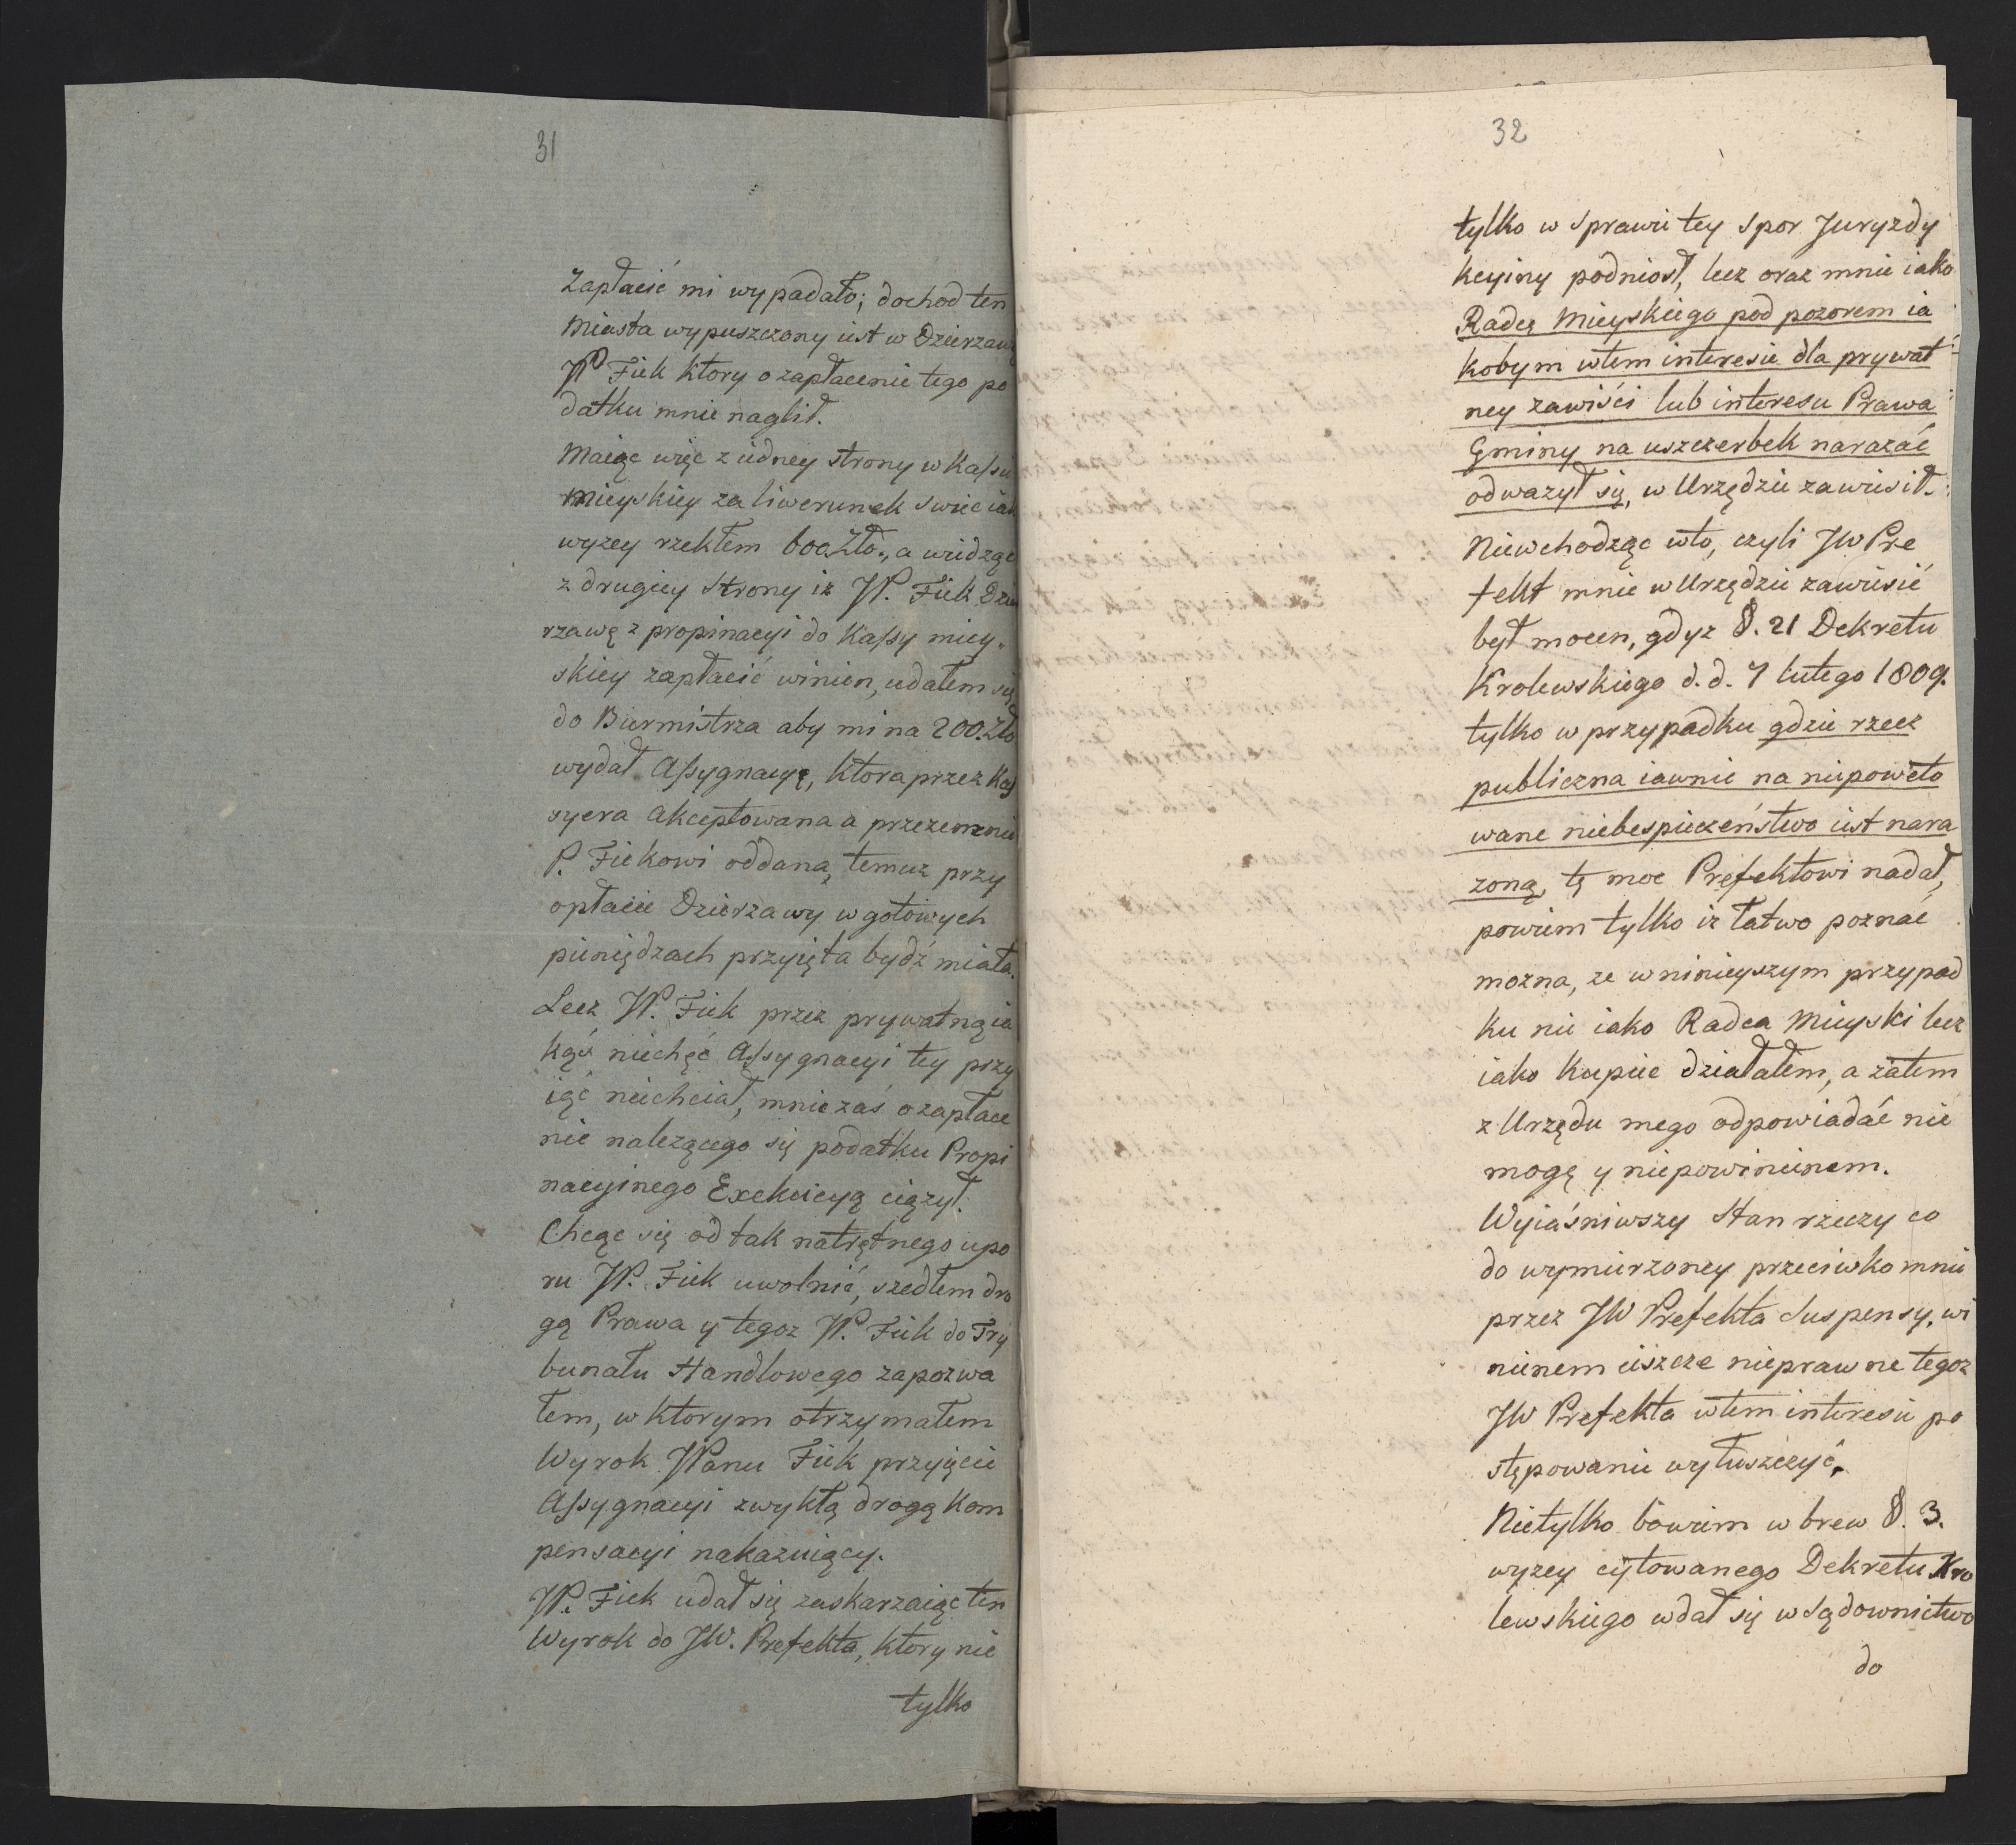 31
Zapłacić mi wypadało; dochod ten
Miasta wypuszczony iest w Dzierzawę
W Fiek ktory o zapłacenie tego po
datku mnie naglił.
Maiąc więc z iedney strony w Kassie
Mieyskiey za liwerunek swiec iak
wyzey rzekłem 600 Zło., a widząc
z drugiey strony iz W. Fiek Dzie
rzawę z propinacyi do Kassy miey„
skiey zapłacić winien, udałem się
do Burmistrza aby mi na 200. Zło
wydał Assygnacyę, ktora przez Kas
syera akceptowana a przezemnie
P. Fiekowi oddaną, temuz przy
opłacie Dzierzawy w gotowych
pieniędzach przyięta bydź miała.
Lecz W. Fiek przez prywatną ia
kąś niechęć Assygnacyi tey przy
iąć niechciał, mnie zaś o zapłace
nie nalezącego się podatku Propi
nacyinego Exekucyą ciązył.
Chcąc się od tak natrętnego upo
ru W. Fiek uwolnić, szedłem dro
gą Prawa y tegoz W. Fiek do Try
bunału Handlowego zapozwa
łem, w ktorym otrzymałem
Wyrok WPanu Fiek przyięcie
Assygnacyi zwykłą drogą Kom
pensacyi nakazuiący.
W. Fiek udał się zaskarzaiąc ten
Wyrok do JW. Prefekta, ktory nie
tylko
32
tylko w sprawie tey spor Juryzdy
kcyiny podniosł, lecz oraz mnie iako
Radcę Mieyskiego pod pozorem ia
kobym wtem interesie dla prywat
ney zawiści lub interesu Prawa
Gminy na uszczerbek narazać
odwazył się, w Urzędzie zawiesił.
Niewchodząc wto, czyli JW Pre
fekt mnie w Urzędzie zawiesić
był mocen, gdyz §. 21 Dekretu
Krolewskiego d. d. 7 lutego 1809.
tylko w przypadku gdzie rzecz
publiczna iawnie na niepoweto
wane niebespieczeństwo iest nara
zoną, tę moc Prefektowi nadał,
powiem tylko iz łatwo poznać
mozna, ze w ninieyszym przypad
ku nie iako Radca Mieyski lecz
iako Kupiec działałem, a zatem
z Urzędu mego odpowiadać nie
mogę y niepowinienem.
Wyiaśniwszy Stan rzeczy co
do wymierzoney przeciwko mnie
przez JW Prefekta Suspensy, wi
nienem ieszcze nieprawne tegoz
JW Prefekta wtem interesie po
stępowanie wyłuszczyć.
Nietylko bowiem w brew §. 3.
wyzey cytowanego Dekretu Kro
lewskiego wdał się w sądownictwo
do